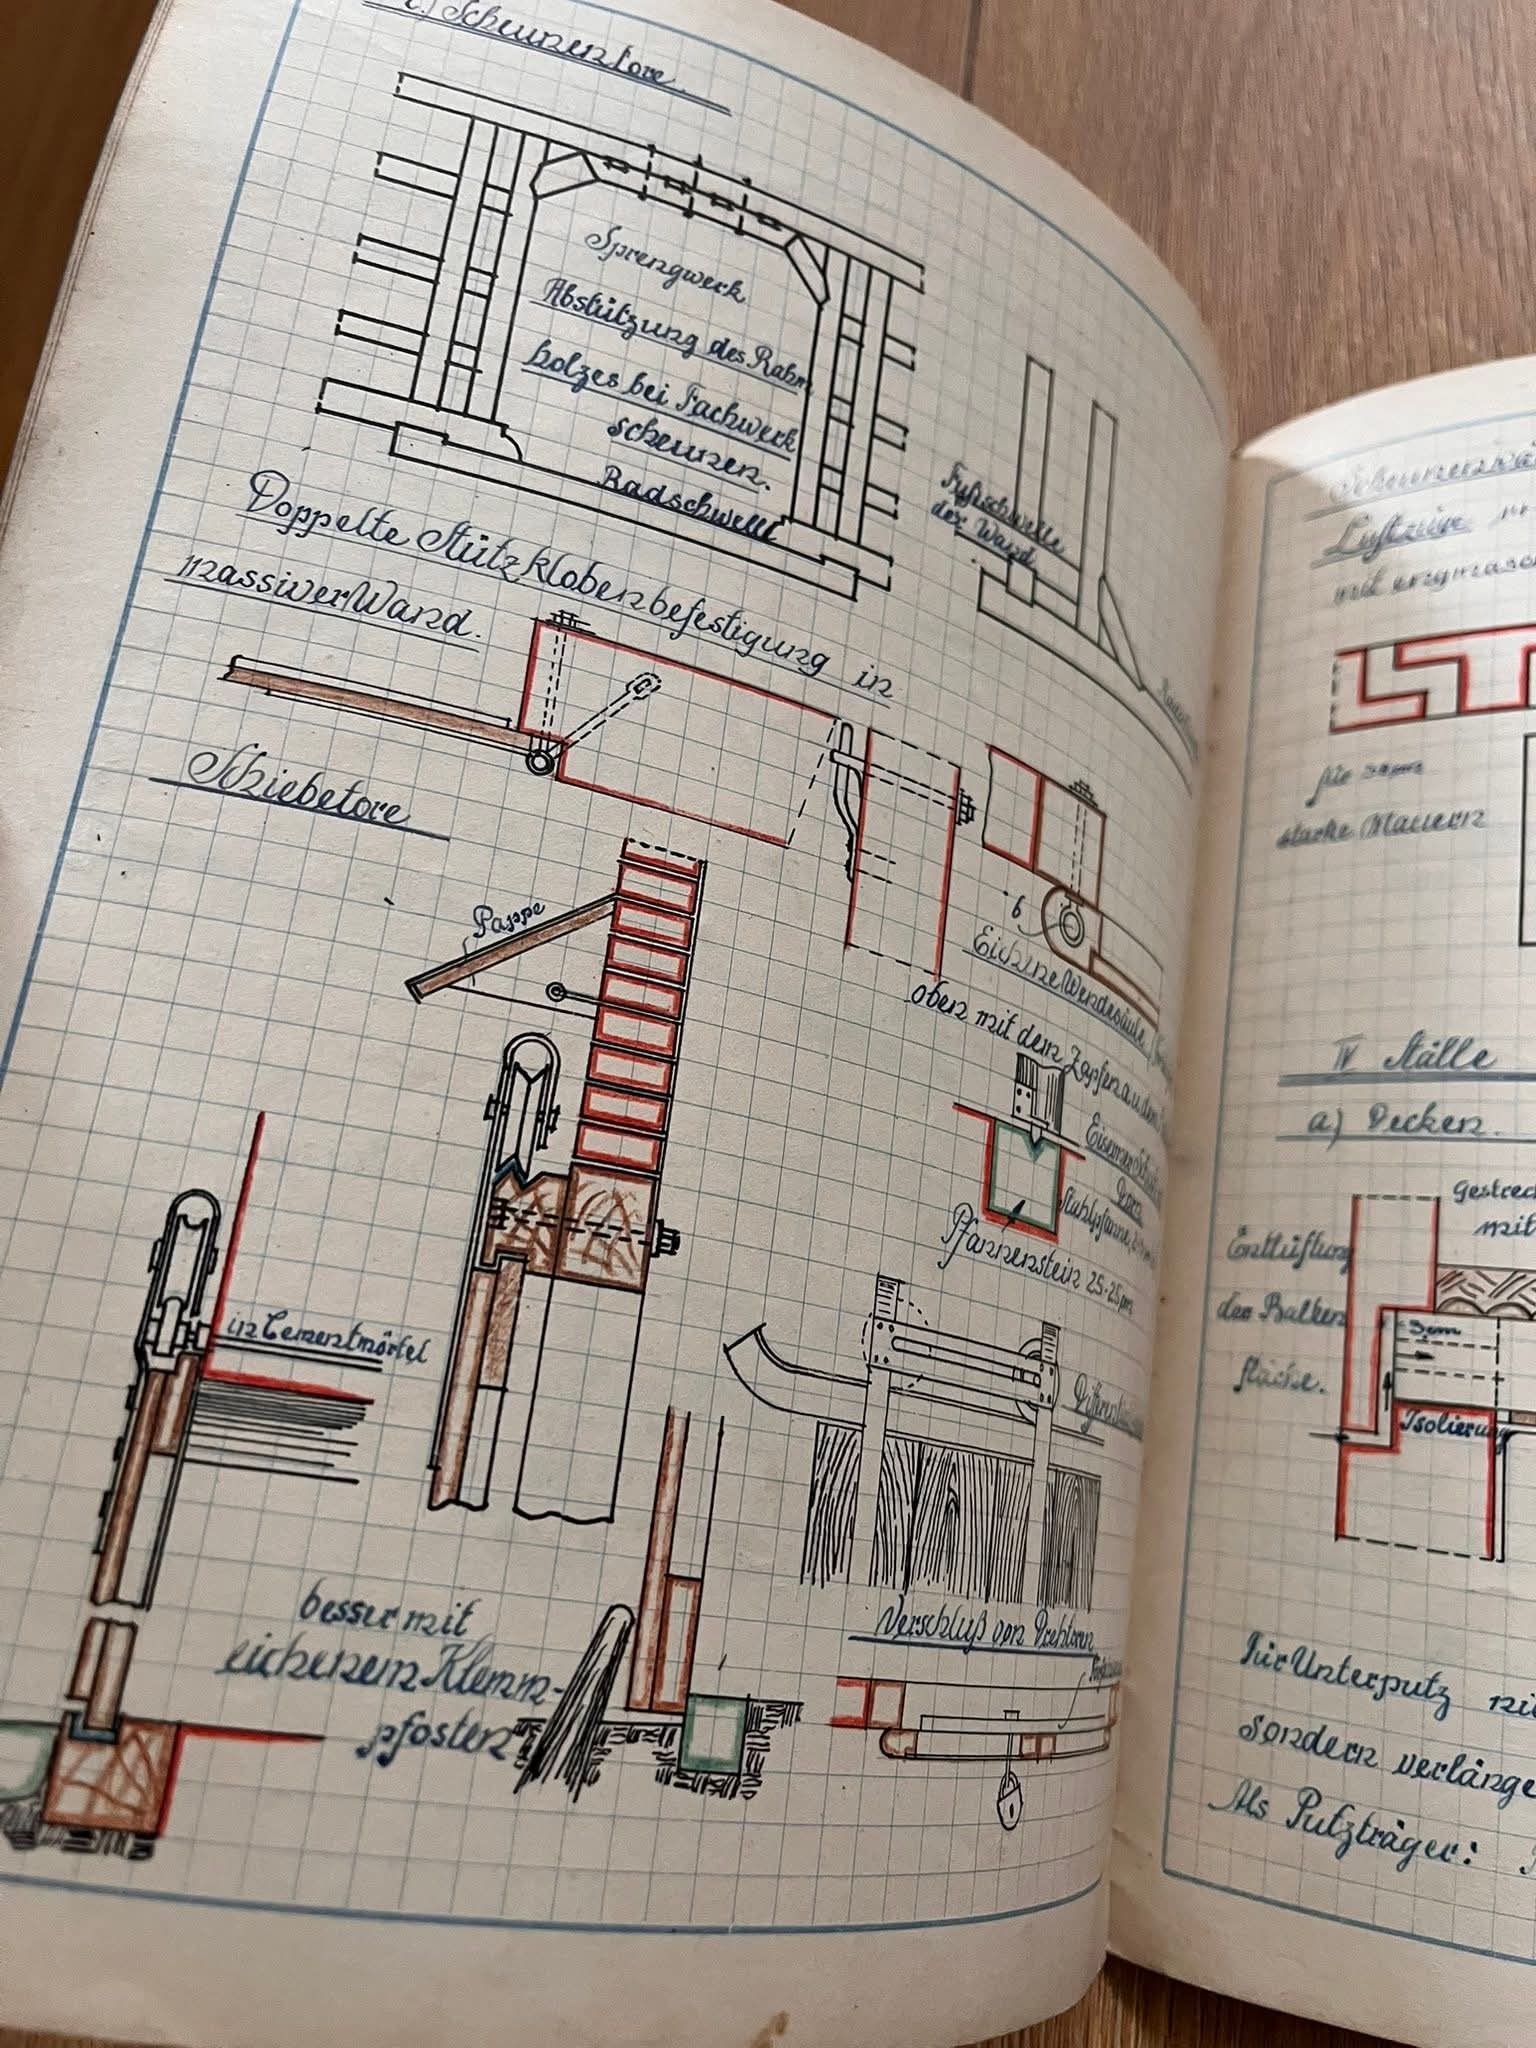 Scheunentore
Sprengwerk
Abstützung des Rahm
holzes bei Fachwerk
scheunen.
Radschwelle
Fußschwelle
der Wand
Doppelte Stützklobenbefestigung in
massiver Wand.
Schiebetore
Pappe
b
Eichene Wendesäule
oben mit dem Zapfen an dem
Eiserner
Dorn
Stahlpfanne
Pfannenstein 25·25
in Cementmörtel
besser mit
eichenem Klemm-
pfosten
Verschluß von Drehtoren
Luftzüge
mit engmasch
für
starke Mauern
IV Ställe
a) Decken.
Gestreck
mit
Entlüftung
der Balken
fläche.
3cm
Isolierung
Für Unterputz ni
sondern verlänge
Als Putzträger: